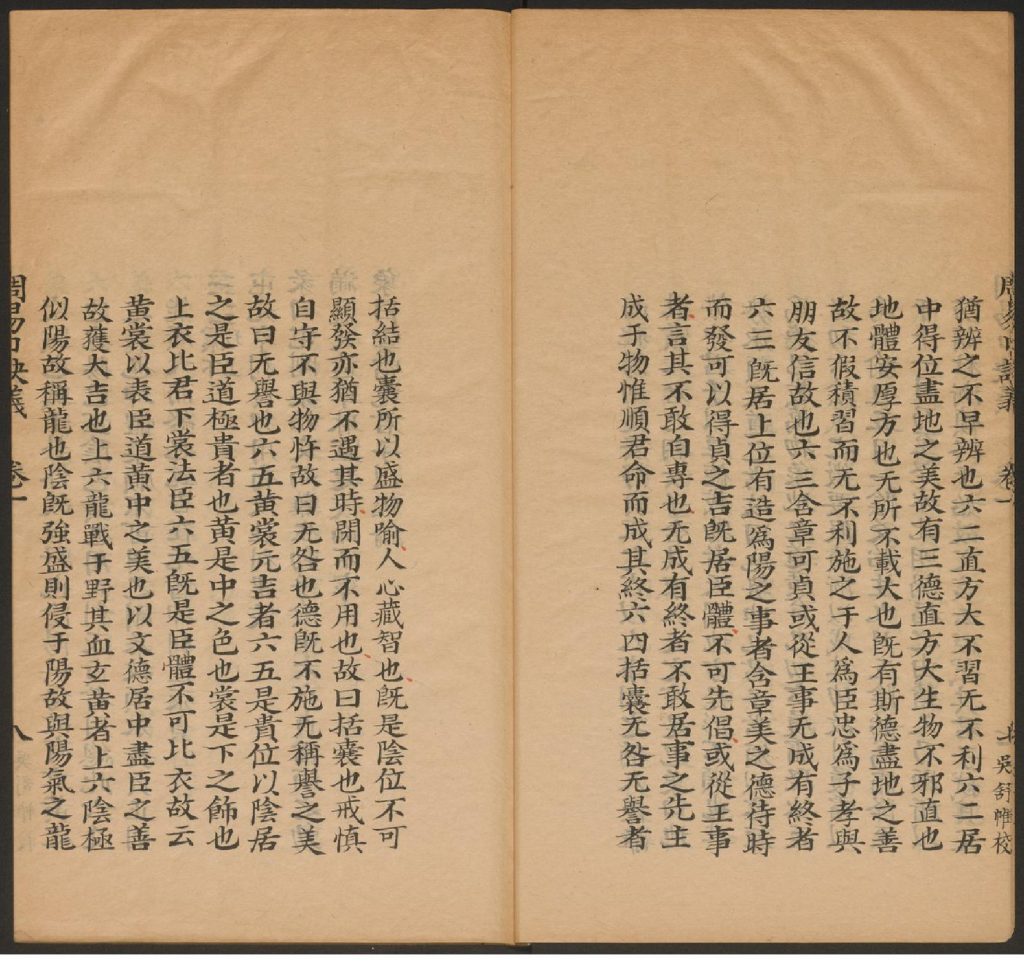 周易口訣義 卷一 七 吳舒帷校
猶辨之不早辨也六二直方大不習无不利六二居
中得位盡地之美故有三德直方大生物不邪直也
地體安厚方也无所不載大也旣有斯德盡地之善
故不假積習而无不利施之于人爲臣忠爲子孝與
朋友信故也六三含章可貞或從王事无成有終者
六三旣居上位有造爲陽之事者含章美之德待時
而發可以得貞之吉旣居臣體不可先倡或從王事
者言其不敢自專也无成有終者不敢居事之先主
成于物惟順君命而成其終六四括囊无咎无譽者
括結也囊所以盛物喻人心藏智也旣是陰位不可
顯發亦猶不遇其時閉而不用也故曰括囊也戒慎
自守不與物忤故曰无咎也德旣不施无稱譽之美
故曰无譽也六五黃裳元吉者六五是貴位以陰居
之是臣道極貴者也黃是中之色也裳是下之飾也
上衣比君下裳法臣六五旣是臣體不可比衣故云
黃裳以表臣道黃中之美也以文德居中盡臣之善
故獲大吉也上六龍戰于野其血玄黃者上六陰極
似陽故稱龍也陰旣強盛則侵于陽故與陽氣之龍
周易口訣義 卷一 八